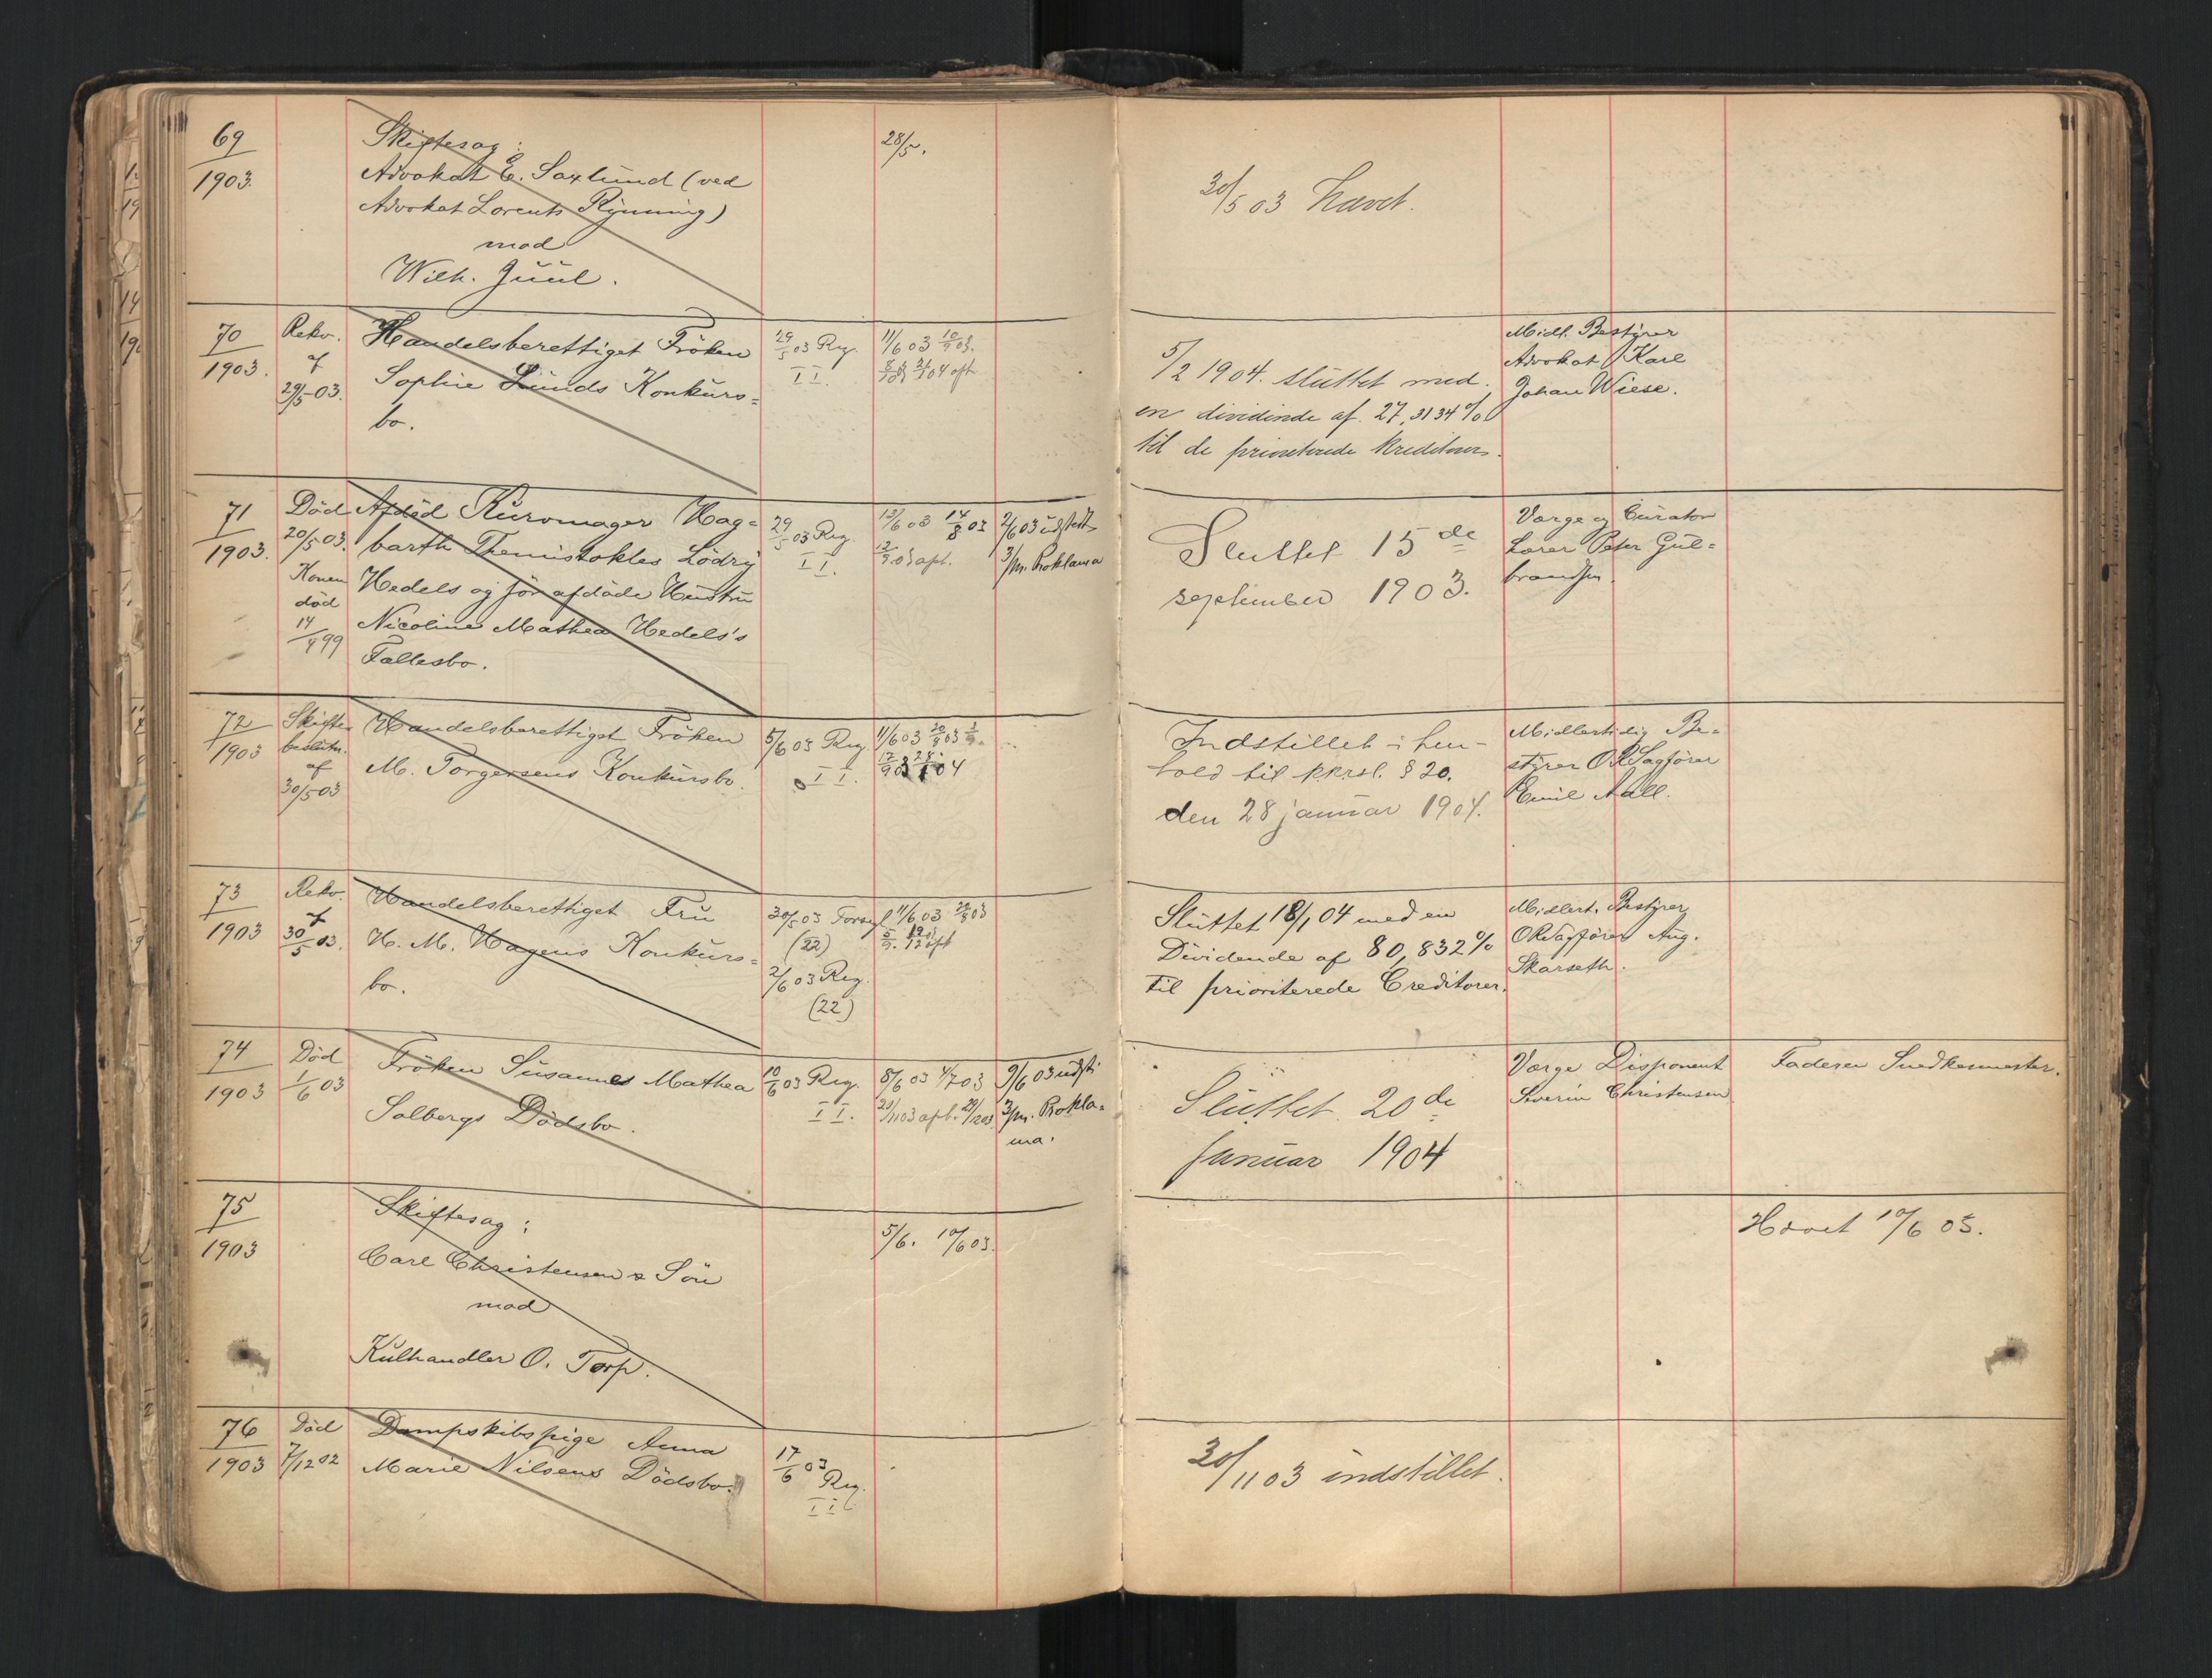 69
1903.
Skiftesag:
Advokat E. Saxlund (ved
Advokat Lorents Rynning)
mod
Wilh. Juul.
28/5.
30/5 03 Hævet.
70
1903.
Rekv.
af
29/5 03.
Handelsberettiget Frøken
Sophie Lunds Konkurs=
bo.
29/5 03 Reg.
II.
11/6 03
5/2 1904. sluttet med
en dividende af 27,3134 %
til de prioriterede kreditorer.
Midl. Bestyrer
Advokat Karl
Johan Wiese.
71
1903.
Død
20/5 03.
Konen
død
Afdød Kurvmager Hag=
barth Themistokles Lödrÿ
Hedels og før afdøde Hustru
Nicoline Mathea Hedels's
Fællesbo.
29/5 03 Reg.
II.
2/6 03 udstedt
3/m. Proklama
Sluttet 15de
september 1903.
Værge og Curator
Lærer Peter Gul=
brandsen.
72
1903
Skifte
beslutn.
af
30/5 03
Handelsberettiget Frøken
M. Torgersens Konkursbo.
5/6 03 Reg.
II.
11/6 03
Indstillet i hen-
hold til kkrsl. § 20.
den 28 januar 1904.
Midlertidig Be-
styrer O.R.Sagfører
Emil Aall.
73
1903
Rekv.
af
30/5 03.
Handelsberettiget Fru
H. M. Hagens Konkurs=
bo.
30/5 03 Forsegl.
(22)
2/6 03 Reg.
(22)
11/6 03
Sluttet 18/1 04 med en
Dividende af 80,832 %
til prioriterede Creditorer.
Midlert. Bestyrer
ORSagfører Aug.
Skarseth.
74
1903
Død
1/6 03
Frøken Susanne Mathea
Solbergs Dødsbo.
10/6 03 Reg.
II.
8/6 03
9/6 03 udst.
3/m. Prokla=
ma.
Sluttet 20de
Januar 1904
Værge Disponent
Severin Christensen
Faderen Snedkermester.
75
1903
Skiftesag:
Carl Christensen & Søn
mod
Kulhandler O. Torp.
5/6. 10/6 03.
Hævet 10/6 03.
76
1903
Død
7/12 02
Dampskibspige Anna
Marie Nilsens Dødsbo.
17/6 03
Reg.
II
30/11 03 indstillet.